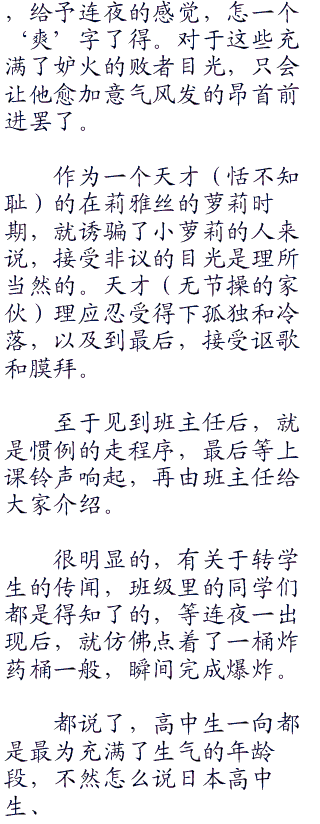 ，给予连夜的感觉，怎一个
‘爽’字了得。对于这些充
满了妒火的败者目光，只会
让他愈加意气风发的昂首前
进罢了。
作为一个天才（恬不知
耻）的在莉雅丝的萝莉时
期，就诱骗了小萝莉的人来
说，接受非议的目光是理所
当然的。天才（无节操的家
伙）理应忍受得下孤独和冷
落，以及到最后，接受讴歌
和膜拜。
至于见到班主任后，就
是惯例的走程序，最后等上
课铃声响起，再由班主任给
大家介绍。
很明显的，有关于转学
生的传闻，班级里的同学们
都是得知了的，等连夜一出
现后，就仿佛点着了一桶炸
药桶一般，瞬间完成爆炸。
都说了，高中生一向都
是最为充满了生气的年龄
段，不然怎么说日本高中
生、